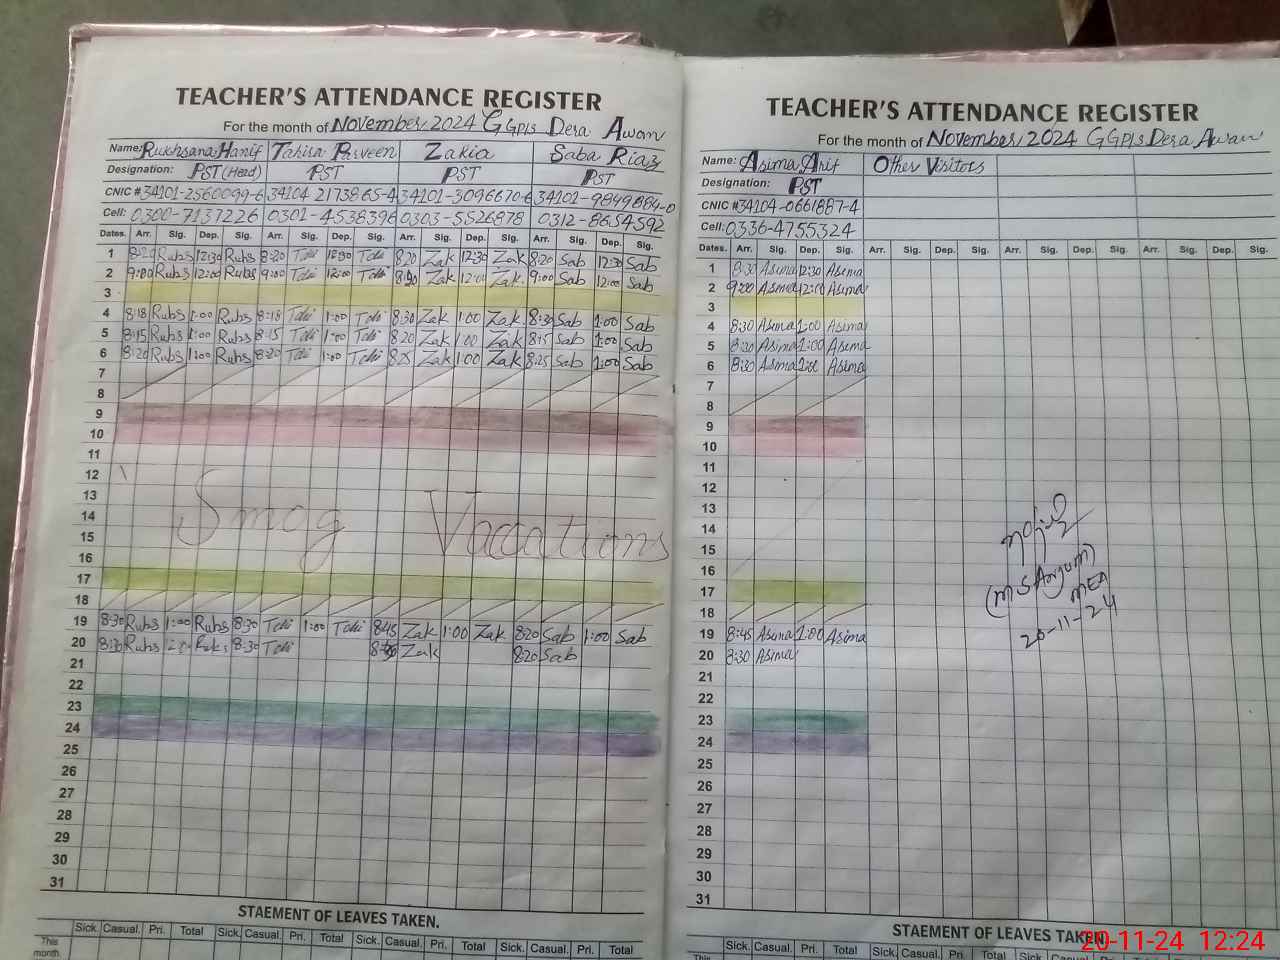 TEACHER'S ATTENDANCE REGISTER
For the month of November 2024 GGPLS Dera Awan
Name: Rukhsana Hanif Tahira Parveen Zakia Saba Riaz
Designation: PST (Head) PST PST PST
CNIC # 34101-2560099-6 34104 2173865-4 34101-3096670-6 34101-9849884-0
Cell: 0300-7137226 0301-4538396 0303-5526878 0312-8654592
Dates. Arr. Sig. Dep. Sig. Arr. Sig. Dep. Sig. Arr. Sig. Dep. Sig. Arr. Sig. Dep. Sig.
1 8:20 Rubs 12:30 Rubs 8:20 Tahi 12:30 Tahi 8:20 Zak 12:30 Zak 8:20 Sab 12:30 Sab
2 9:00 Rubs 12:00 Rubs 9:00 Tahi 12:00 Tahi Zak 12:00 Zak. 9:00 Sab 12:00 Sab
3
4 8:18 Rubs 1:00 Rubs 8:18 Tahi 1:00 Tahi 8:30 Zak 1:00 Zak. 8:30 Sab 1:00 Sab
5 8:15 Rubs 1:00 Rubs 8:15 Tahi 1:00 Tahi 8:20 Zak 1:00 Zak 8:15 Sab 1:00 Sab
6 8:20 Rubs 1:00 Rubs 8:20 Tahi 1:00 Tahi 8:25 Zak 1:00 Zak 8:25 Sab 1:00 Sab
7
8
9
10
11
12
13
14
Smog Vacations
15
16
17
18
19 8:30 Rubs 1:00 Rubs 8:30 Tahi 1:00 Tahi 8:45 Zak 1:00 Zak 8:20 Sab 1:00 Sab
20 8:30 Rubs Rubs 8:30 Tahi Zak 8:20 Sab
21
22
23
24
25
26
27
28
29
30
31
STAEMENT OF LEAVES TAKEN.
Sick. Casual. Pri. Total Sick. Casual. Pri. Total Sick. Casual. Pri. Total Sick. Casual. Pri. Total
This month.
TEACHER'S ATTENDANCE REGISTER
For the month of November 2024 GGPLS Dera Awan
Name: Asima Arif Other Visitors
Designation: PST
CNIC # 34104-0661887-4
Cell: 0336-4755324
Dates. Arr. Sig. Dep. Sig. Arr. Sig. Dep. Sig. Arr. Sig. Dep. Sig. Arr. Sig. Dep. Sig.
1 8:30 Asima 12:30 Asima
2 9:00 Asima 12:00 Asima
3
4 8:30 Asima 1:00 Asima
5 8:30 Asima 1:00 Asima
6 8:30 Asima 1:00 Asima
7
8
9
10
11
12
13
14
15
16
17
18
19 8:45 Asima 1:00 Asima
20 8:30 Asima
21
22
23
24
25
26
27
28
29
30
31
(M S Anjum)
MEA
20-11-24
STAEMENT OF LEAVES TAKEN.
Sick. Casual. Pri. Total Sick. Casual. Pri. Total Sick. Casual. Pri. Total Sick. Casual. Pri. Total
This
20-11-24 12:24